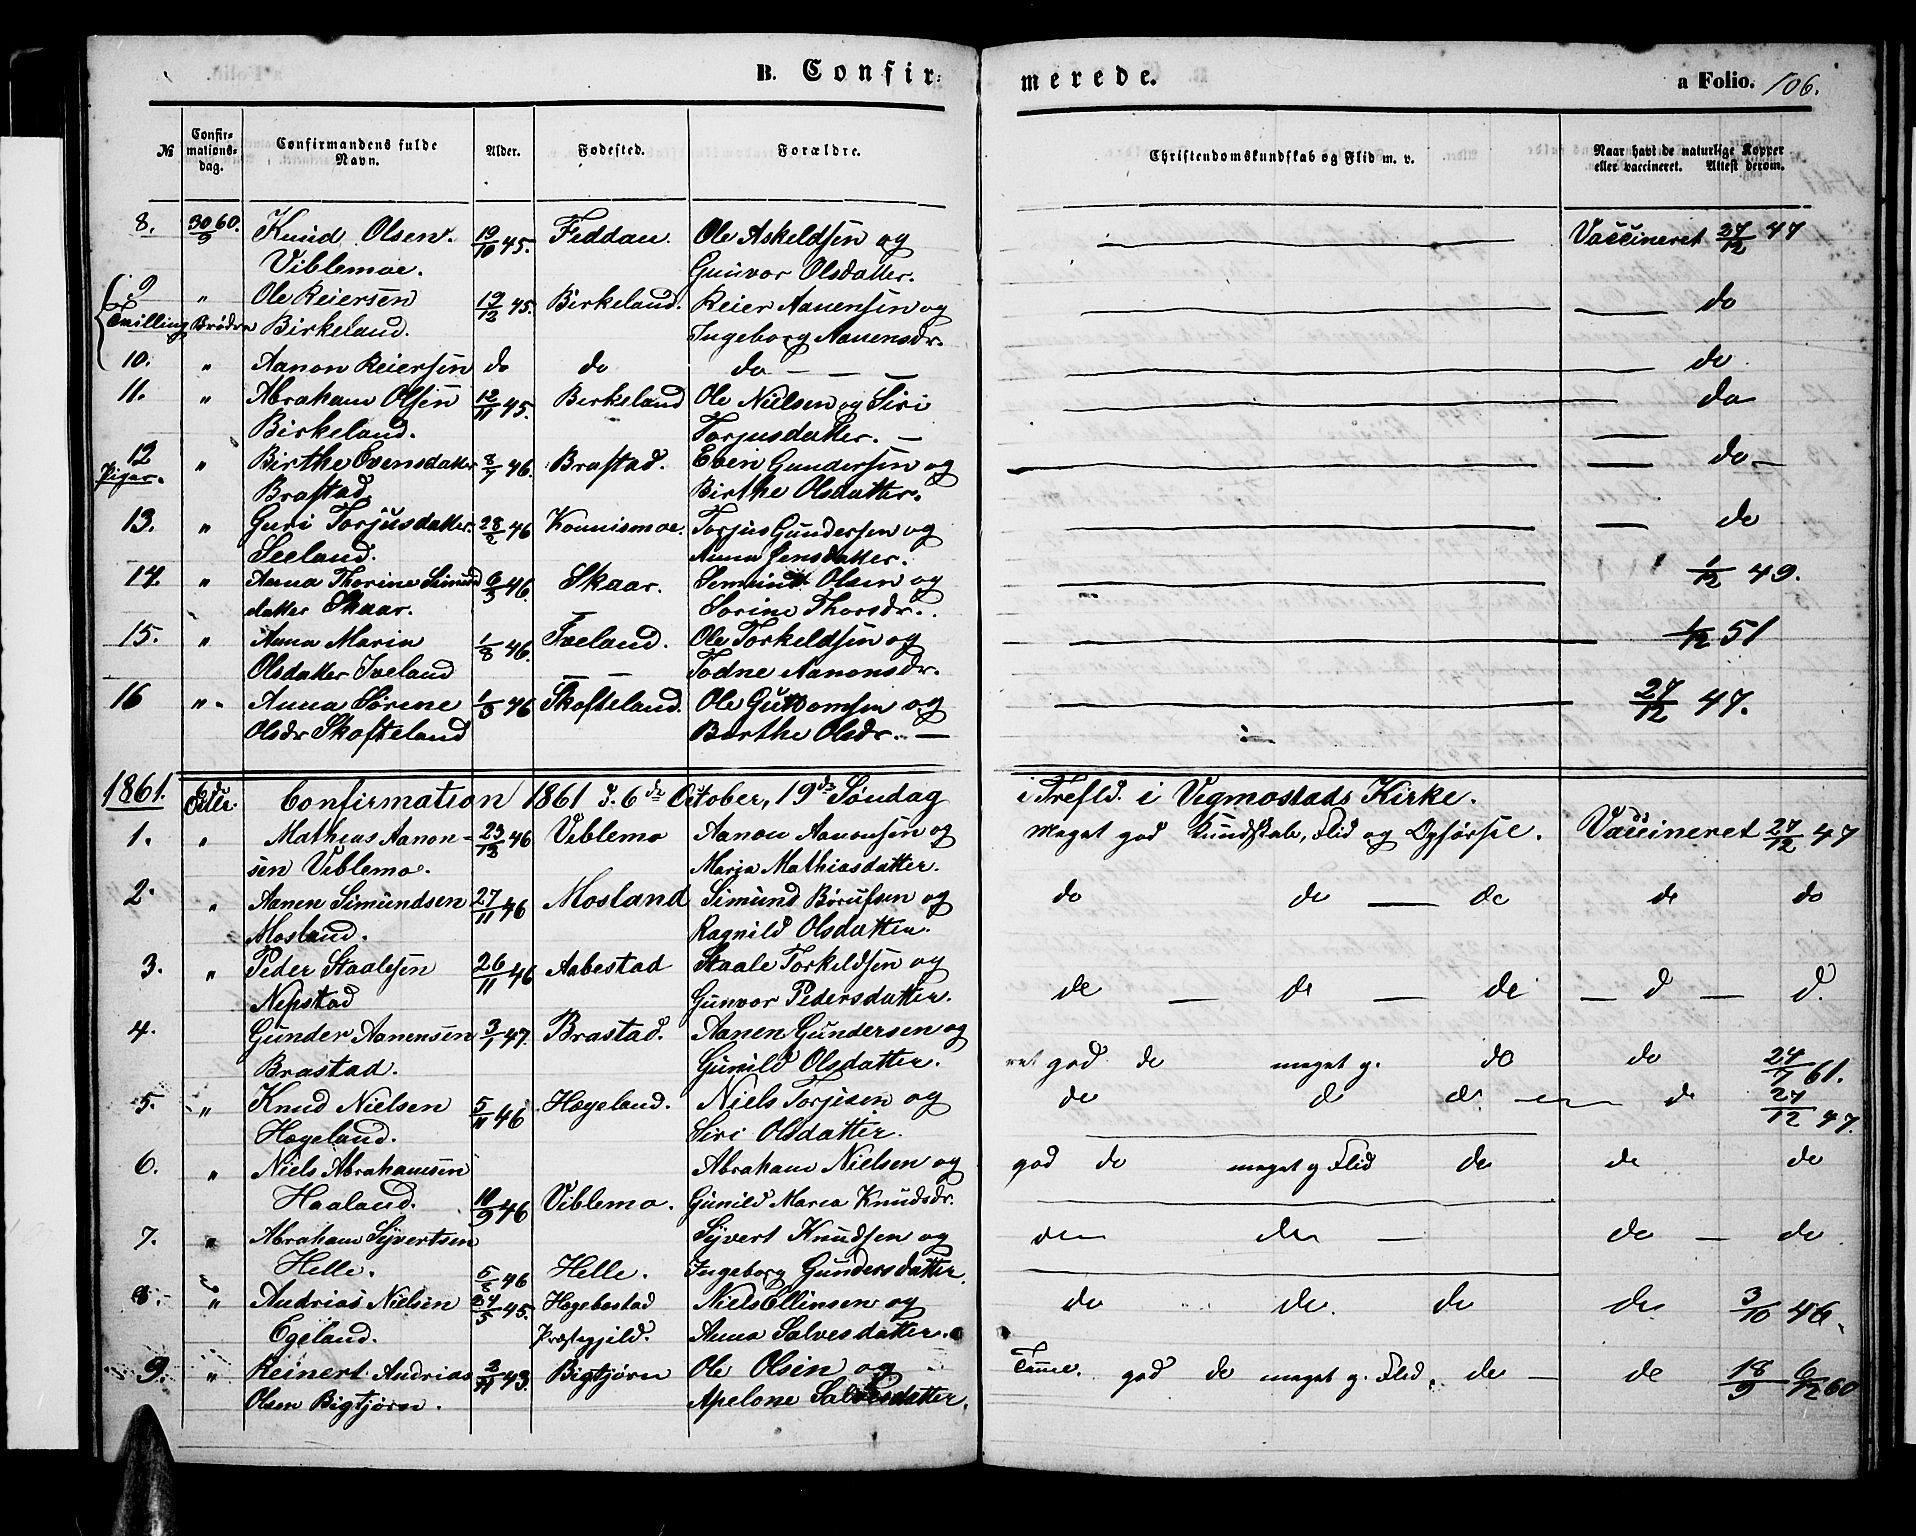 B. Confir-
merede.
a Folio. 106.
№ Confir-mations-dag. Confirmandens fulde Navn. Alder. Fødested. Forældre. Christendomskundskab og Flid m. v. Naar havt de naturlige Kopper eller vaccineret. Attest derom.
8. 30/9 60. Knud Olsen 19/10 45. Feddan. Ole Askeldsen og Vaccineret 27/12 47
Viblemoe. Gunvor Olsdatter.
9 " Ole Reiersen 19/12 45. Birkeland. Reier Aanensen og do
Tvilling Brødre Birkeland. Ingeborg Aanensdr.
10. " Aanon Reiersen do do do — — do
11. " Abraham Olsen 12/11 45. Birkeland Ole Nielsen og Siri do
Birkeland. Torjusdatter. —
12 " Birthe Evensdatter 8/7 46. Brastad. Even Gundersen og do —
Piger. Brastad. Birthe Olsdatter.
13. " Guri Torjusdatter 28/2 46 Konnismoe. Torjus Gundersen og do
Seeland. Anna Jensdatter.
14. " Anna Thorine Simund 6/5 46. Skaar. Simund Olsen og 1/12 49.
datter Skaar. Sorine Thorsdr.
15. " Anna Maria 1/8 46. Iveland. Ole Torkeldsen og 1/12 51
Olsdatter Iveland Todne Aanonsdr.
16 " Anna Sørine 1/5 46 Skofteland. Ole Guttomsen og 27/12 47.
Olsdr Skofteland Berthe Olsdr. —
1861. 6de Octbr. Confirmation 1861 d. 6de October, 19de Søndag i Trefld. i Vigmostads Kirke.
1. " Mathias Aanon- 23/12 46 Viblemo Aanon Aanonsen og Meget god Kundskab, Flid og Opførsel. Vaccineret 27/12 47
sen Viblemo. Maria Mathiasdatter.
2. " Aanen Simundsen 27/11 46 Mosland Simund Børufsen og do do — do do do
Mosland. Ragnild Olsdatter.
3. " Peder Staalesen 26/11 46 Aabestad Staale Torkeldsen og do — do — do — d — d.
Nepstad Gunvor Pedersdatter.
4. " Gunder Aanensen 3/1 47. Brastad. Aanen Gundersen og
Brastad. Gunild Olsdatter. god do meget g. do do 24/7 61.
5. " Knud Nielsen 5/11 46 Hægeland. Niels Torjisen og do d d — d 27/12 47.
Hægeland. Siri Olsdatter.
6. " Niels Abrahamsen Abraham Nielsen og god do meget g Flid do do do
Haaland. 10/9 46 Viblemo. Gunild Maria Knudsdr.
7. " Abraham Sijvertsen Sijvert Knudsen og do do — do — do
Helle. 5/8 46 Helle. Ingeborg Gundersdatter.
8. " Andrias Nielsen 24/5 45. Hægebostad Niels Ellinsen og do do. do do 3/10 46.
Egeland. Præstegjeld. Anna Salvesdatter.
9. " Reinert Andrias 2/11 43. Bigtjørn Ole Olsen og Tmme. god do meget g. Flid. do — do 18/9 6/12 60
Olsen Bigtjørn. Apelone Salvesdatter.